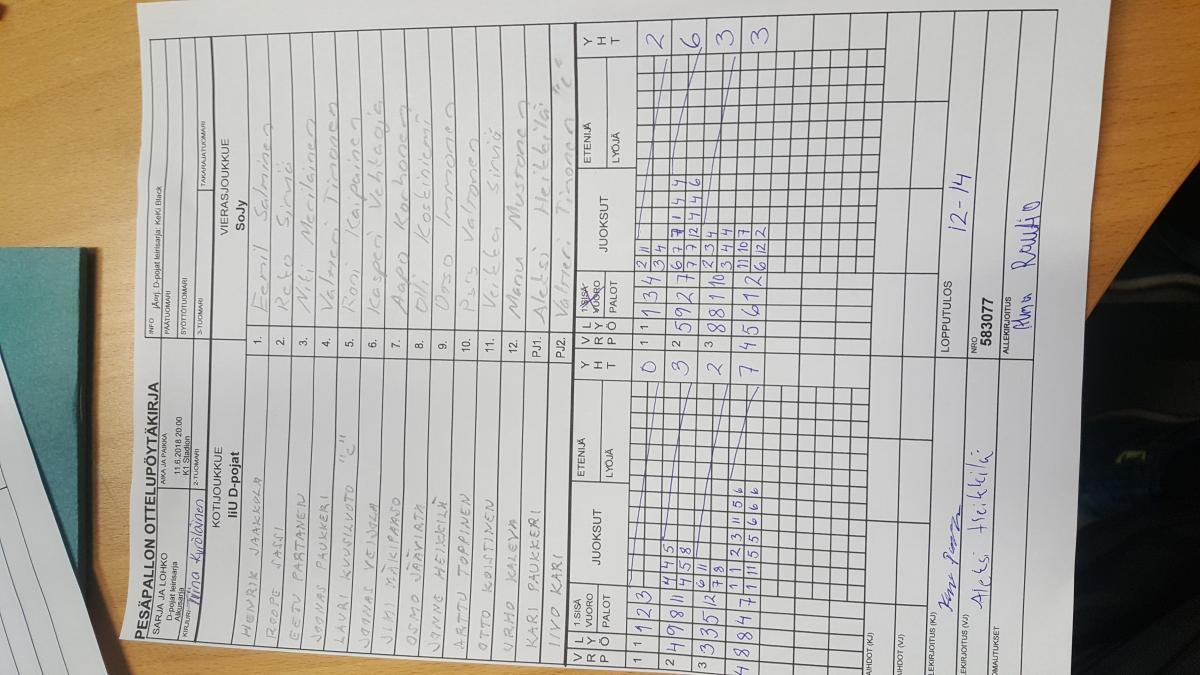 PESÄPALLON OTTELUPÖYTÄKIRJA
SARJA JA LOHKO
D-pojat leirisarja
Alkusarja
AIKA JA PAIKKA
11.6.2018 20:00
K1 Stadion
INFO jÄorj. D-pojat leirisarja: KeKi Black
PÄÄTUOMARI
SYÖTTÖTUOMARI
KIRJURI Niina Kyröläinen
2-TUOMARI
3-TUOMARI
TAKARAJATUOMARI
KOTIJOUKKUE
IiU D-pojat
VIERASJOUKKUE
SoJy
HENRIK JAAKKOLA 1. Eemil Salminen
ROOPE SASSI 2. Reko Sirviö
EETU PARTANEN 3. Niki Meriläinen
JOONAS PAUKKERI 4. Valmei Tinonen
LAURI KUUSILUOTO "C" 5. Roni Kaipainen
JOONAS VEIJOLA 6. Kasperi Vehtaoja
MÄKIPAASO 7. Aapo Korhonen
OSMO JÄVIRTA 8. Koskiniemi
JANNE HEIKKILÄ 9. Immonen
ARTTU TOPPINEN 10. Valtonen
OTTO KOISTINEN 11. Veikka Sirviö
URHO KALEVA 12. Manu Mustonen
KARI PAUKKERI PJ1. Aleksi Heikkilä
IIVO KARI PJ2. Valtteri Tinonen "C"
V R P L Y Ö 1.SISÄ VUORO PALOT JUOKSUT ETENIJÄ LYÖJÄ Y H T V R P L Y Ö 1.SISÄ VUORO PALOT JUOKSUT ETENIJÄ LYÖJÄ Y H T
1 1 1 2 3 0 1 1 1 3 4 2 11 2
3 4
2 4 9 8 11 4 4 5 3 2 5 9 2 7 6 7 7 1 4 4 6
4 5 8 7 7 12 4 4 6
3 3 3 5 12 6 11 2 3 8 8 1 10 2 3 4 3
7 8 3 4 4
4 8 8 4 7 1 1 2 3 11 5 6 7 4 5 6 12 11 10 7 3
1 11 5 5 6 6 6 6 12 2
AIHDOT (KJ)
AIHDOT (VJ)
LEKIRJOITUS (KJ)
LOPPUTULOS 12-14
LEKIRJOITUS (VJ) Aleksi Heikkilä
NRO
583077
OMAUTUKSET
ALLEKIRJOITUS
Alma Rautio